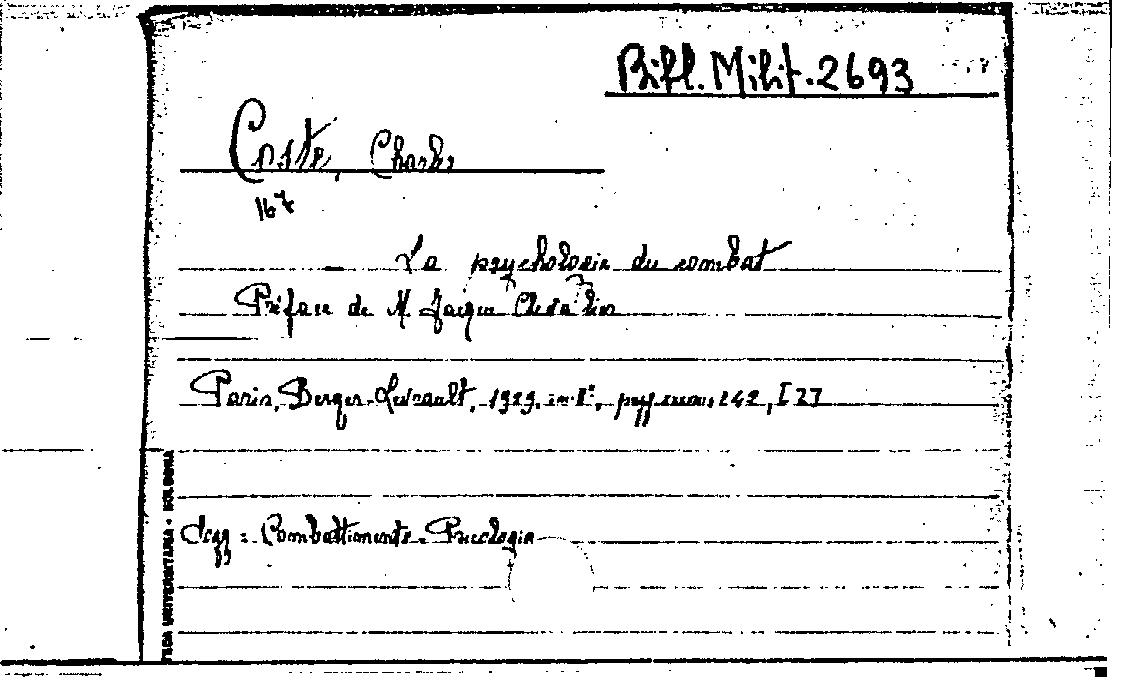 Bibl. Milit. 2693
Coste, Charles
167
La psychologie du combat
Préface de M Jacques Chevalier
Paris, Berger-Levrault, 1929, in-8°, pagg. XXXIII, 242, [2]
Sogg: Combattimento - Psicologia
SCHEDA UNIVERSITARIA - BOLOGNA